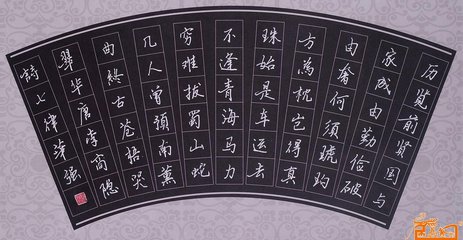 历览前贤国与
家成由勤俭破
由奢何须琥珀
方為枕岂得真
珠始是车运去
不逢青海马力
穷难拔蜀山蛇
几人曾预南薰
曲终古苍梧哭
翠华唐李商隐
詩七律强